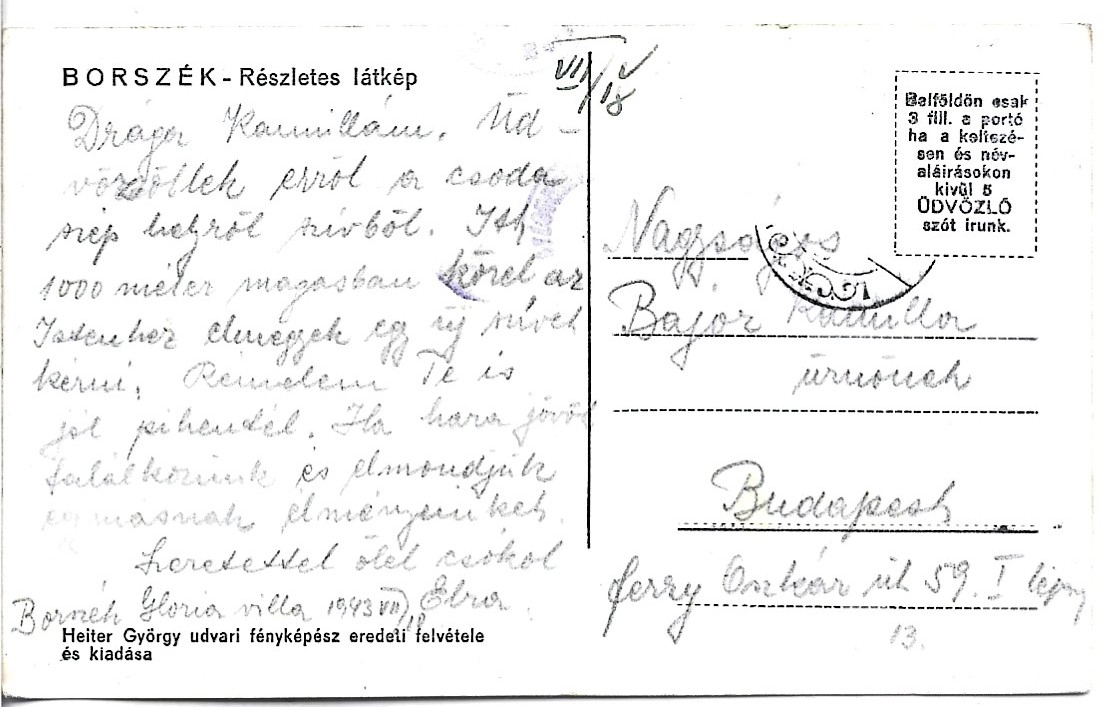 BORSZÉK - Részletes látkép
VII/18
Drága Kamillám. Üd-
vözöllek erről a csoda
szép helyről szívből. Itt
1000 méter magasban közel az
Istenhez elmegyek egy új szívet
kérni. Remélem Te is
jól pihentél. Ha haza jövök
találkozunk és elmondjuk
egymásnak élményeinket.
Szeretettel ölel csókol
Borszék Gloria villa 1943 VII/18
Heiter György udvari fényképész eredeti felvétele
és kiadása
Belföldön csak
3 fill. a portó
ha a keltezé-
sen és név-
aláirásokon
kivül 5
ÜDVÖZLŐ
szót irunk.
Nagyságos
Bajor Kamilla
úrnőnek
Budapest
Oszkár út 59. I
13.